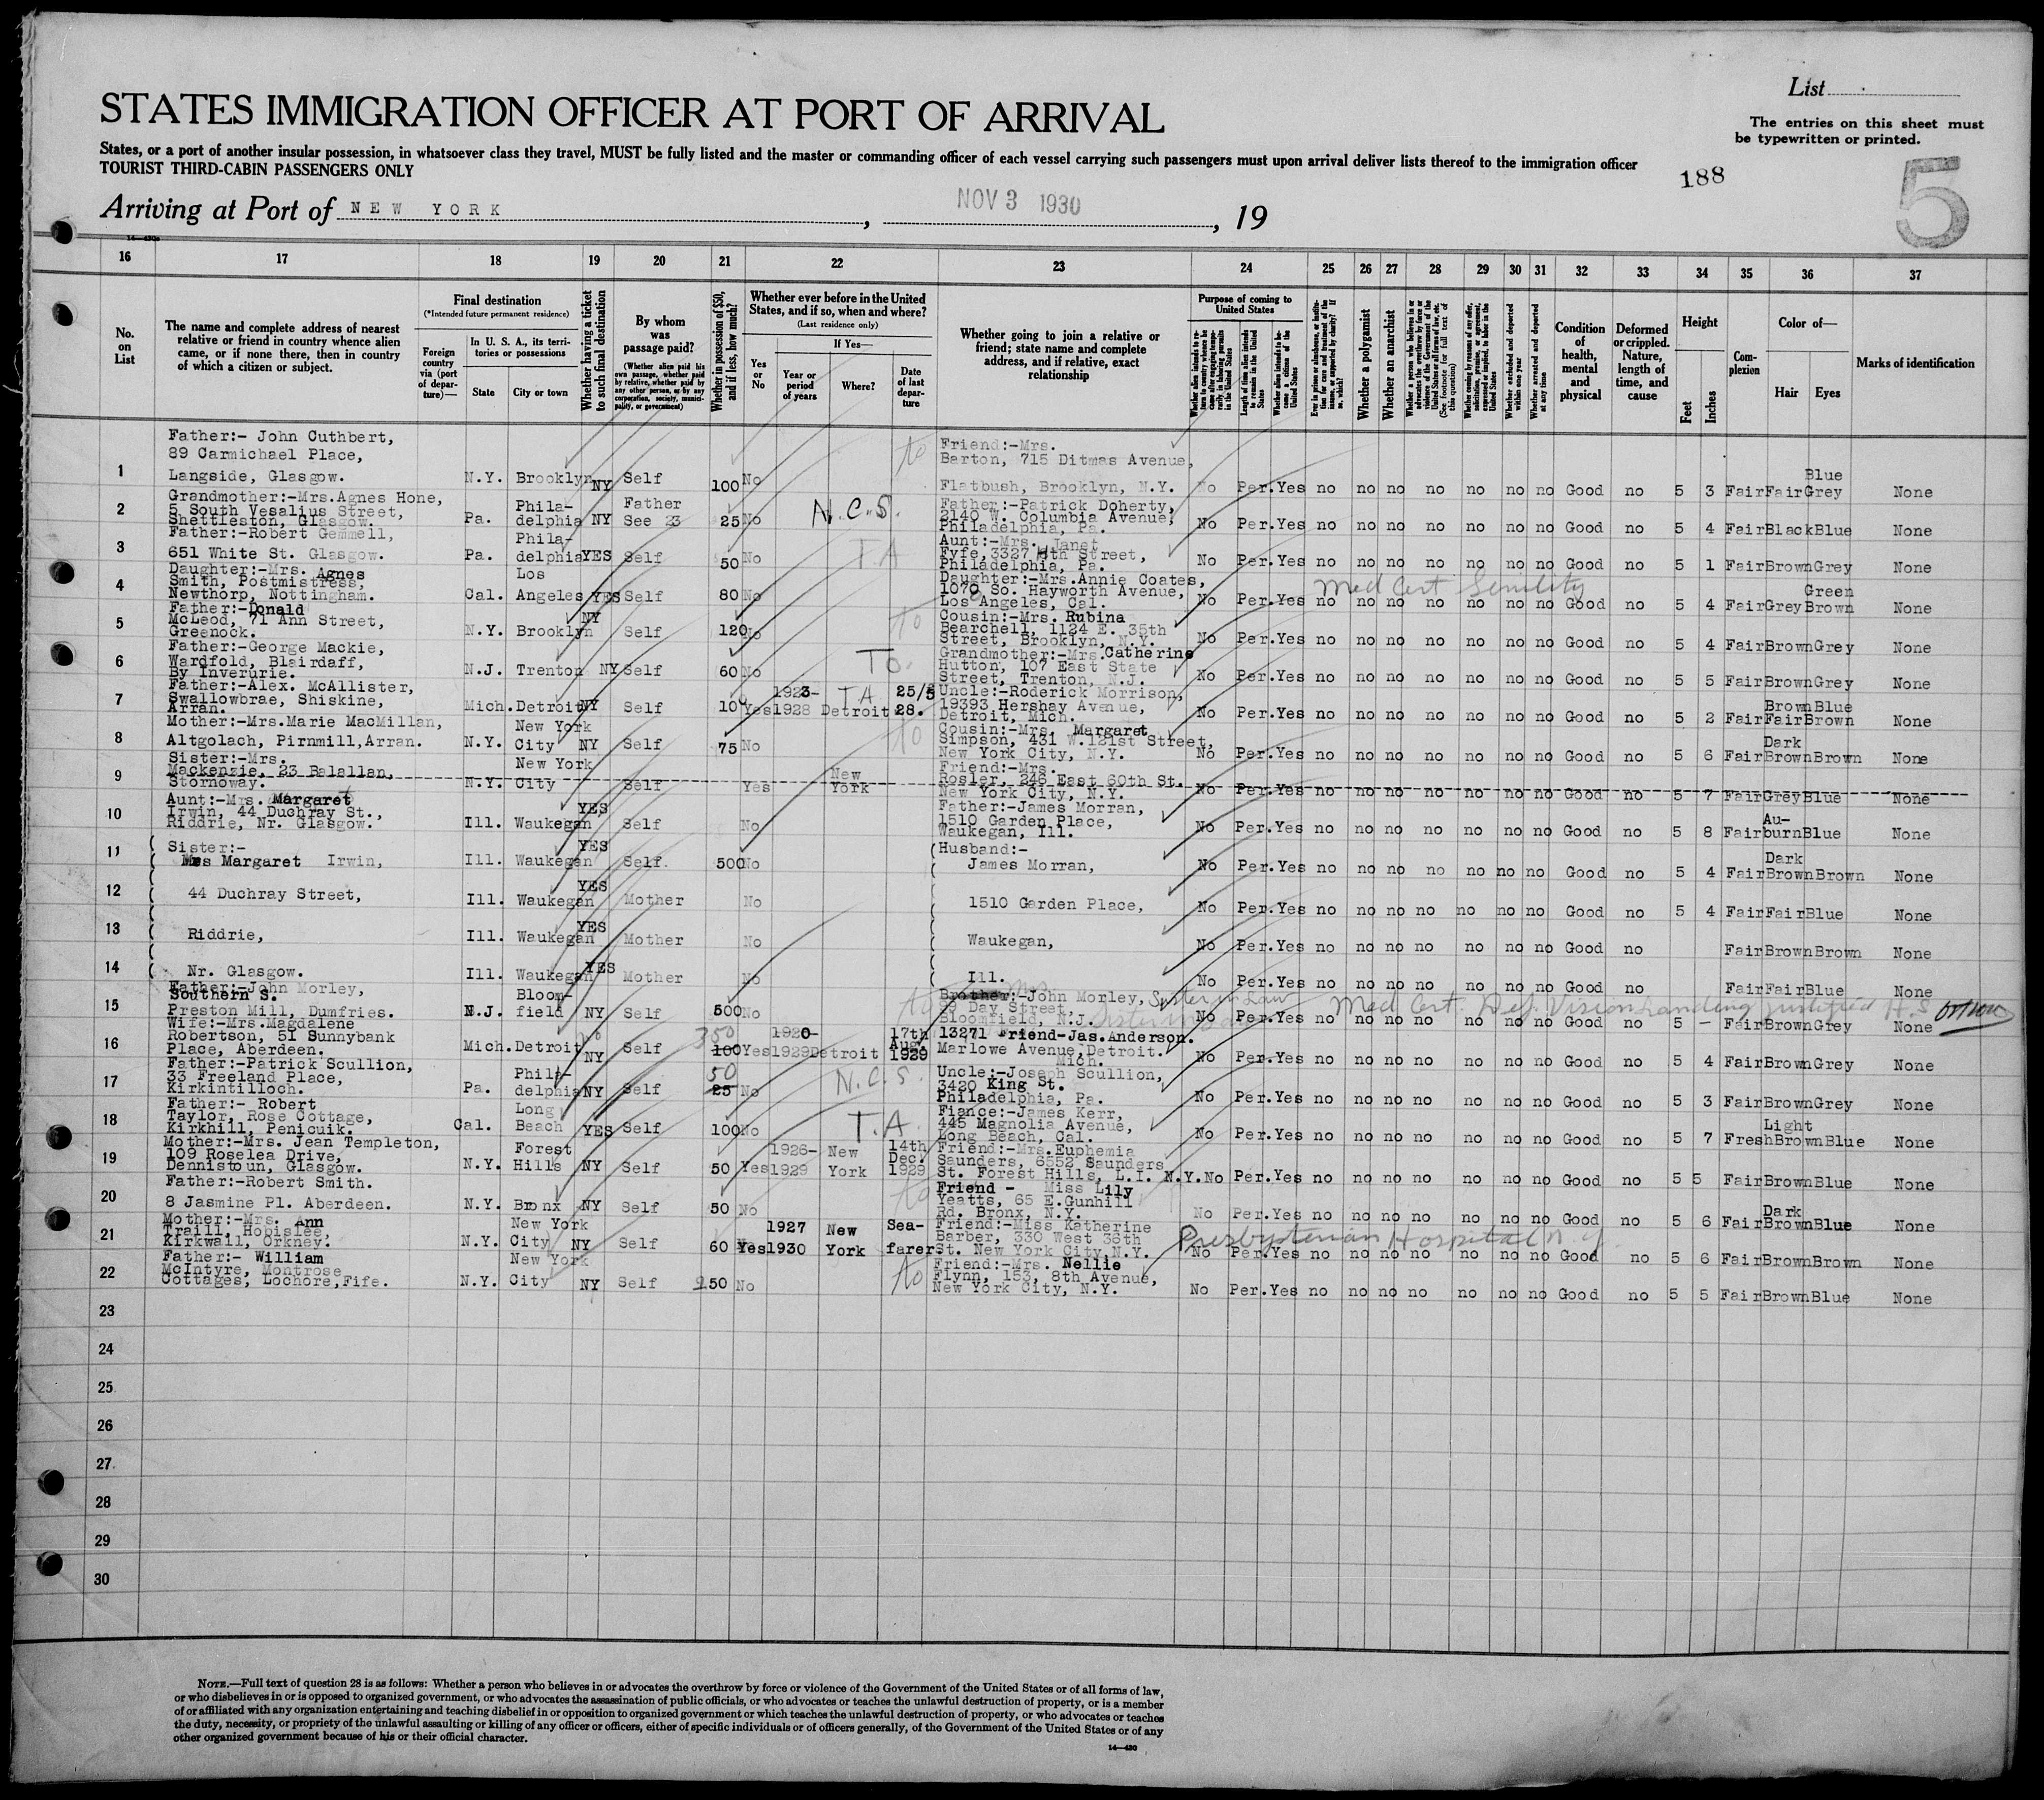 List
STATES IMMIGRATION OFFICER AT PORT OF ARRIVAL
The entries on this sheet must
be typewritten or printed.
States, or a port of another insular possession, in whatsoever class they travel, MUST be fully listed and the master or commanding officer of each vessel carrying such passengers must upon arrival deliver lists thereof to the immigration officer
TOURIST THIRD-CABIN PASSENGERS ONLY
188
5
Arriving at Port of NEW YORK , NOV 3 1930 , 19
16 17 18 19 20 21 22 23 24 25 26 27 28 29 30 31 32 33 34 35 36 37
No. on List
The name and complete address of nearest relative or friend in country whence alien came, or if none there, then in country of which a citizen or subject.
Final destination
(*Intended future permanent residence)
Foreign country via (port of departure)—
In U. S. A., its territories or possessions
State
City or town
Whether having a ticket to such final destination
By whom was passage paid?
(Whether alien paid his own passage, whether paid by relative, whether paid by any other person, or by any corporation, society, municipality, or government)
Whether in possession of $50, and if less, how much?
Whether ever before in the United States, and if so, when and where?
(Last residence only)
Yes or No
If Yes—
Year or period of years
Where?
Date of last departure
Whether going to join a relative or friend; state name and complete address, and if relative, exact relationship
Purpose of coming to United States
Length of time alien intends to remain in the United States
Whether alien intends to become a citizen of the United States
Whether a polygamist
Whether an anarchist
Whether excluded and deported within one year
Whether arrested and deported at any time
Condition of health, mental and physical
Deformed or crippled. Nature, length of time, and cause
Height
Feet
Inches
Complexion
Color of—
Hair
Eyes
Marks of identification
1 Father:- John Cuthbert, 89 Carmichael Place, Langside, Glasgow. N.Y. Brooklyn NY Self 100 No to Friend:-Mrs. Barton, 715 Ditmas Avenue, Flatbush, Brooklyn, N.Y. No Per. Yes no no no no no no no Good no 5 3 Fair Fair Blue Grey None
2 Grandmother:-Mrs.Agnes Hone, 5 South Vesalius Street, Shettleston, Glasgow. Pa. Phila-delphia NY Father See 23 25 No N.C.S. Father:-Patrick Doherty, 2140 W. Columbia Avenue, Philadelphia, Pa. No Per. Yes no no no no no no no Good no 5 4 Fair Black Blue None
3 Father:-Robert Gemmell, 651 White St. Glasgow. Pa. Phila-delphia YES Self 50 No T A Aunt:-Mrs. Janet Fyfe, 3327 Hth Street, Philadelphia, Pa. No Per. Yes no no no no no no no Good no 5 1 Fair Brown Grey None
4 Daughter:-Mrs. Agnes Smith, Postmistress, Newthorp, Nottingham. Cal. Los Angeles YES Self 80 No Daughter:-Mrs.Annie Coates, 1070 So. Hayworth Avenue, Los Angeles, Cal. No Per. Yes Med Cert Senility no no no no no no no Good no 5 4 Fair Grey Green Brown None
5 Father:-Donald McLeod, 71 Ann Street, Greenock. N.Y. Brooklyn NY Self 120 No to Cousin:-Mrs. Rubina Bearchell, 1124 E. 35th Street, Brooklyn, N.Y. No Per. Yes no no no no no no no Good no 5 4 Fair Brown Grey None
6 Father:-George Mackie, Wardfold, Blairdaff, By Inverurie. N.J. Trenton NY Self 60 No To. Grandmother:-Mrs.Catherine Hutton, 107 East State Street, Trenton, N.J. No Per. Yes no no no no no no no Good no 5 5 Fair Brown Grey None
7 Father:-Alex. McAllister, Swallowbrae, Shiskine, Arran. Mich. Detroit NY Self 100 Yes 1923-1928 T A Detroit 25/5 28. Uncle:-Roderick Morrison, 19393 Hershay Avenue, Detroit, Mich. No Per. Yes no no no no no no no Good no 5 2 Fair Brown Fair Blue Brown None
8 Mother:-Mrs.Marie MacMillan, Altgolach, Pirnmill, Arran. N.Y. New York City NY Self 75 No to Cousin:-Mrs. Margaret Simpson, 431 W.121st Street, New York City, N.Y. No Per. Yes no no no no no no no Good no 5 6 Fair Dark Brown Brown None
9 Sister:-Mrs. Mackenzie, 23 Balallan, Stornoway. N.Y. New York City Self Yes New York Friend:-Mrs. Rosler, 246 East 60th St. New York City, N.Y. No Per. Yes no no no no no no no Good no 5 7 Fair Grey Blue None
10 Aunt:-Mrs. Margaret Irwin, 44 Duchray St., Riddrie, Nr. Glasgow. Ill. Waukegan YES Self No Father:-James Morran, 1510 Garden Place, Waukegan, Ill. No Per. Yes no no no no no no no Good no 5 8 Fair Au-burn Blue None
11 Sister:- Mrs Margaret Irwin, Ill. Waukegan YES Self. 500 No Husband:- James Morran, No Per. Yes no no no no no no no Good no 5 4 Fair Dark Brown Brown None
12 44 Duchray Street, Ill. Waukegan YES Mother No 1510 Garden Place, No Per. Yes no no no no no no no Good no 5 4 Fair Fair Blue None
13 Riddrie, Ill. Waukegan YES Mother No Waukegan, No Per. Yes no no no no no no no Good no Fair Brown Brown None
14 Nr. Glasgow. Ill. Waukegan YES Mother No Ill. No Per. Yes no no no no no no no Good no Fair Fair Blue None
15 Father:-John Morley, Southern S. Preston Mill, Dumfries. N.J. Bloom-field NY Self 500 No to Brother:- Mrs John Morley, Sister in Law 99 Day Street, Bloomfield, N.J. Sister in Law No Per. Yes Med Cert. Def. Vision landing justified H.S. no no no no no no no Good no 5 - Fair Brown Grey None
16 Wife:-Mrs.Magdalene Robertson, 51 Sunnybank Place, Aberdeen. Mich. Detroit no NY Self 350 100 Yes 1920-1929 Detroit 17th Aug. 1929 13271 Friend-Jas.Anderson. Marlowe Avenue, Detroit. Mich. No Per. Yes no no no no no no no Good no 5 4 Fair Brown Grey None
17 Father:-Patrick Scullion, 33 Freeland Place, Kirkintilloch. Pa. Phila-delphia NY Self 50 25 No N.C.S. Uncle:-Joseph Scullion, 3420 King St. Philadelphia, Pa. No Per. Yes no no no no no no no Good no 5 3 Fair Brown Grey None
18 Father:- Robert Taylor, Rose Cottage, Kirkhill, Penicuik. Cal. Long Beach YES Self 100 No T.A. Fiance:-James Kerr, 445 Magnolia Avenue, Long Beach, Cal. No Per. Yes no no no no no no no Good no 5 7 Fresh Light Brown Blue None
19 Mother:-Mrs. Jean Templeton, 109 Roselea Drive, Dennistoun, Glasgow. N.Y. Forest Hills NY Self 50 Yes 1926-1929 New York 14th Dec. 1929 Friend:-Mrs.Euphemia Saunders, 6552 Saunders St. Forest Hills, L.I. N.Y. No Per. Yes no no no no no no no Good no 5 5 Fair Brown Blue None
20 Father:-Robert Smith. 8 Jasmine Pl. Aberdeen. N.Y. Bronx NY Self 50 No to Friend - Miss Lily Yeatts, 65 E.Gunhill Rd. Bronx, N.Y. No Per. Yes no no no no no no no Good no 5 6 Fair Dark Brown Blue None
21 Mother:-Mrs. Ann Traill, Hobislee, Kirkwall, Orkney. N.Y. New York City NY Self 60 Yes 1927 1930 New York Sea-farer Friend:-Miss Katherine Barber, 330 West 36th St. New York City, N.Y. Presbyterian Hospital N.Y. No Per. Yes no no no no no no no Good no 5 6 Fair Brown Brown None
22 Father:- William McIntyre, Montrose Cottages, Lochore, Fife. N.Y. New York City NY Self 250 No to Friend:-Mrs. Nellie Flynn, 153, 8th Avenue, New York City, N.Y. No Per. Yes no no no no no no no Good no 5 5 Fair Brown Blue None
23
24
25
26
27
28
29
30
NOTE.—Full text of question 28 is as follows: Whether a person who believes in or advocates the overthrow by force or violence of the Government of the United States or of all forms of law,
or who disbelieves in or is opposed to organized government, or who advocates the assassination of public officials, or who advocates or teaches the unlawful destruction of property, or is a member
of or affiliated with any organization entertaining and teaching disbelief in or opposition to organized government or which teaches the unlawful destruction of property, or who advocates or teaches
the duty, necessity, or propriety of the unlawful assaulting or killing of any officer or officers, either of specific individuals or of officers generally, of the Government of the United States or of any
other organized government because of his or their official character.
14—430